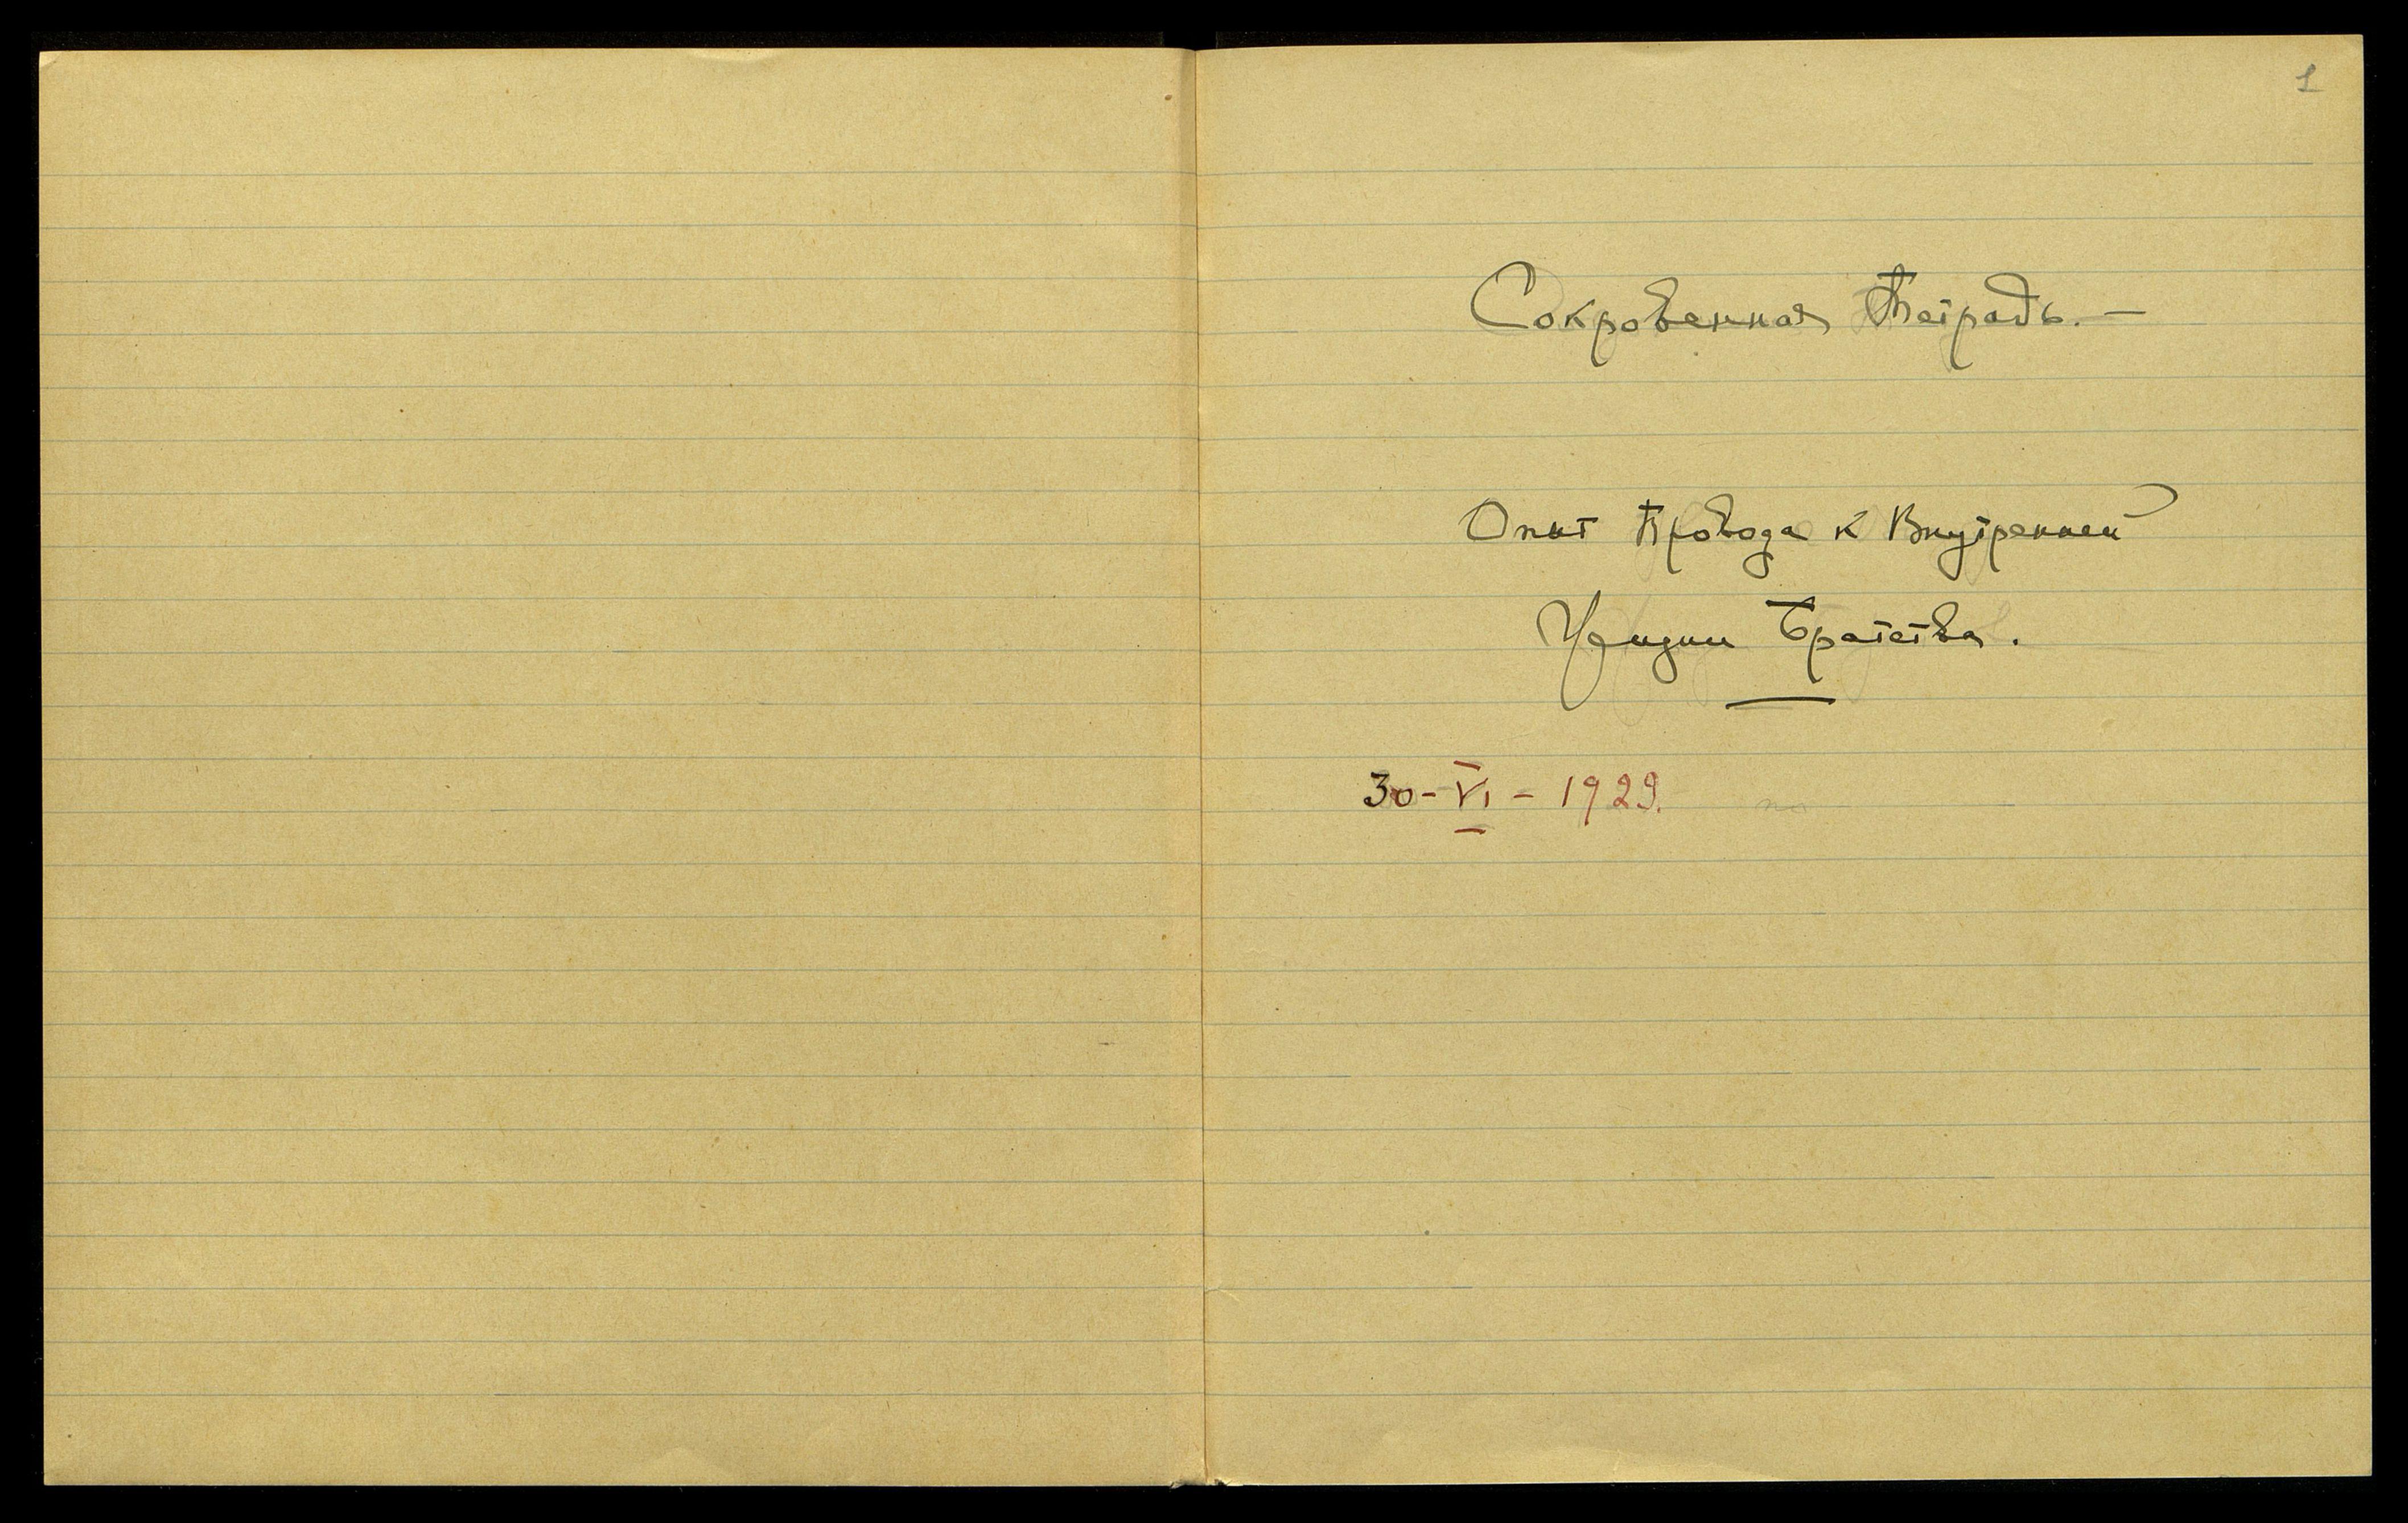 1
Сокровенная Тетрадь. —
Опыт Провода к Внутренней
Общине Братства.
30 - VI - 1929.
по